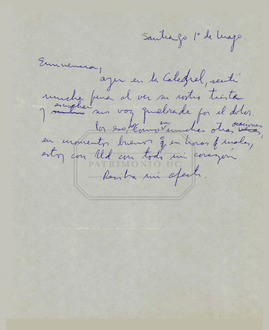 Santiago 1º de Mayo
Eminencia,
ayer en la Catedral, sentí
mucha pena al ver su rostro triste
y escuchar su voz quebrada por el dolor.
Por eso, como en muchas otras ocasiones
en momentos buenos y en horas malas,
estoy con Ud con todo mi corazón
Reciba mi afecto.
PATRIMONIO UC